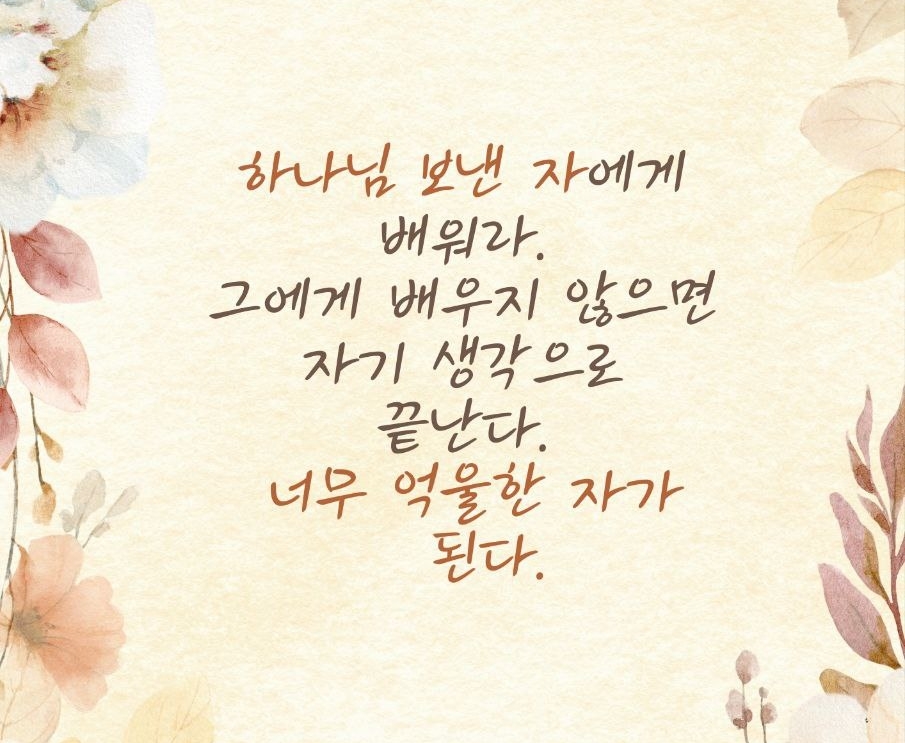 하나님 보낸 자에게
배워라.
그에게 배우지 않으면
자기 생각으로
끝난다.
너무 억울한 자가
된다.